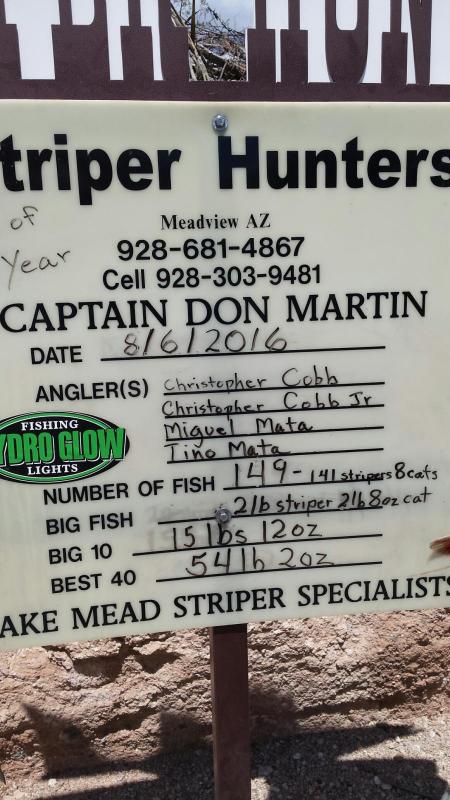 triper Hunters
of
Year
Meadview AZ
928-681-4867
Cell 928-303-9481
CAPTAIN DON MARTIN
DATE 8/6/2016
ANGLER(S) Christopher Cobb
Christopher Cobb Jr
Miguel Mata
Tino Mata
FISHING
YDRO GLOW
LIGHTS
NUMBER OF FISH 149- 141 stripers 8 cats
BIG FISH 2lb striper 2lb 8oz cat
BIG 10 15lbs 12oz
BEST 40 54lb 2oz
AKE MEAD STRIPER SPECIALISTS